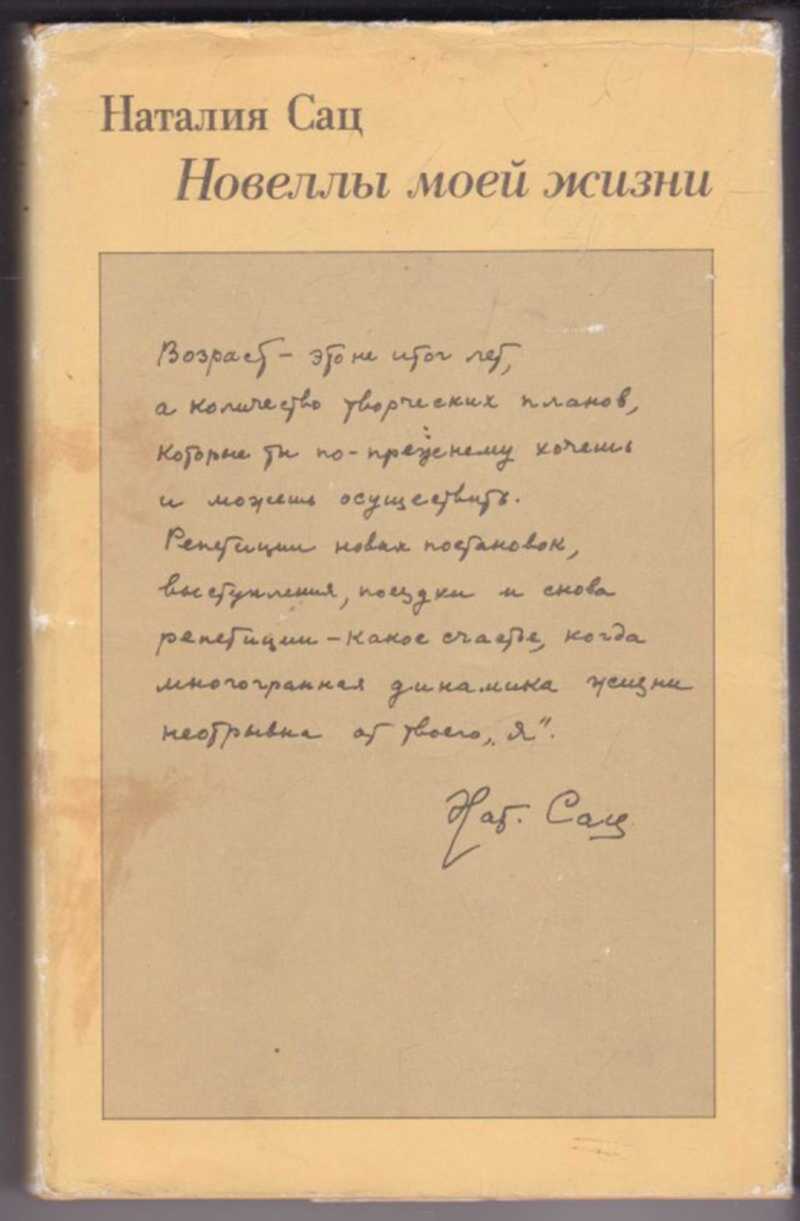 Наталия Сац
Новеллы моей жизни
Возраст – это не итог лет,
а количество творческих планов,
которые ты по-прежнему хочешь
и можешь осуществить.
Репетиции новых постановок,
выступления, поездки и снова
репетиции – какое счастье, когда
многогранная динамика жизни
неотрывна от твоего „я".
Нат. Сац